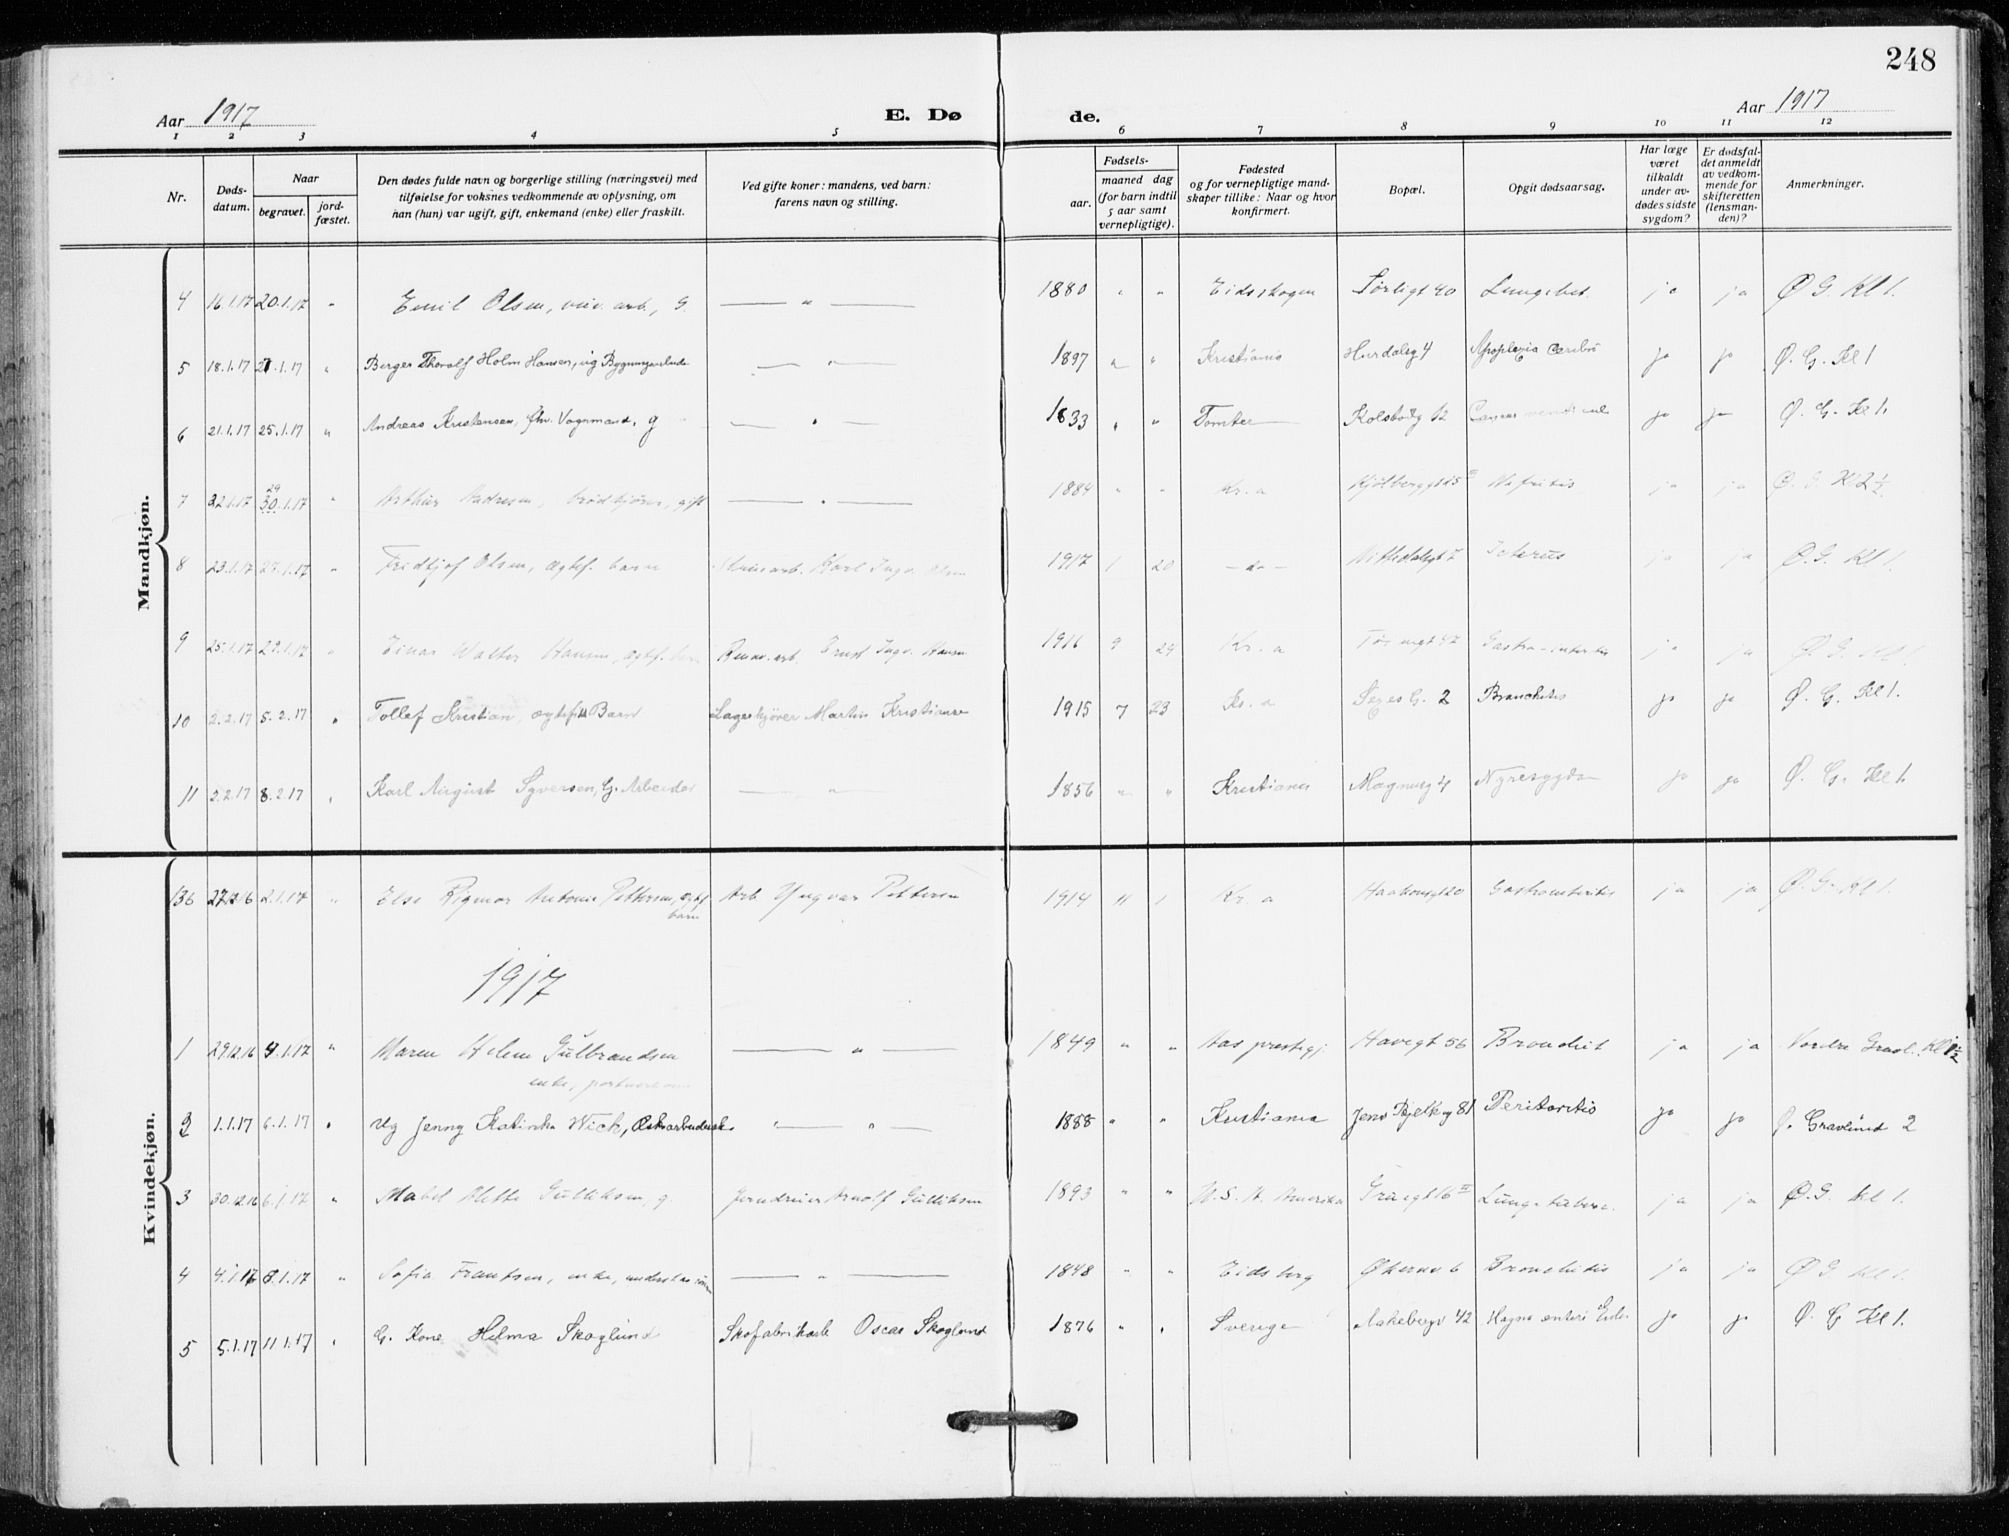 248
Aar 1917
E. Dø
de.
Aar 1917
1 2 3 4 5 6 7 8 9 10 11 12
Nr.
Døds-
datum.
Naar
begravet.
jord-
fæstet.
Den dødes fulde navn og borgerlige stilling (næringsvei) med
tilføielse for voksnes vedkommende av oplysning, om
han (hun) var ugift, gift, enkemand (enke) eller fraskilt.
Ved gifte koner: mandens, ved barn:
farens navn og stilling.
Fødsels-
aar.
maaned dag
(for barn indtil
5 aar samt
vernepligtige).
Fødested
og for vernepligtige mand-
skaper tillike: Naar og hvor
konfirmert.
Bopæl.
Opgit dødsaarsag.
Har læge
været
tilkaldt
under av-
dødes sidste
sygdom?
Er dødsfal-
det anmeldt
av vedkom-
mende for
skifteretten
(lensman-
den)?
Anmerkninger.
Mandkjøn.
4 16.1.17 20.1.17 " Emil Olsen, arb., g. — " — 1880 " " Eidsskogen Sørligt 40 Lungebet. ja ja Ø G. Kl 1.
5 18.1.17 21.1.17 " Birger Thorolf Holm Hansen, ug — " — 1897 " " Kristiania Hurdalsg 4 Apoplexia ja ja Ø. G. Kl 1
6 21.1.17 25.1.17 " Andreas Kristensen, fhv. Vognmand, g — " — 1833 " " Tomter Kolsbodg 12 Cancer ja ja Ø. G. Kl 1.
7 22.1.17 29 30.1.17 " Arthur Andresen, brødkjører, gift — " — 1884 " " Kr.a Kjølberggt 25 Nefritis ja ja Ø. G Kl 2 ½.
8 23.1.17 27.1.17 " Fridtjof Olsen, ægtef. barn Karl Ingv. Olsen 1917 1 20 — do — Nittedalsgt 7 Icterus ja ja Ø. G. Kl 1.
9 25.1.17 29.1.17 " Einar Walter Hansen, ægtef. barn arb. Ernst Ingv. Hansen 1916 9 29 Kr. a 47 Gastro-intertis ja ja Ø. G. Kl 1.
10 2.2.17 5.2.17 " Tollef Kristian, ægtefdt Barn Lagerkjører Martin Kristiansen 1915 7 23 Kr. a G. 2 Bronchitis ja ja Ø. G. Kl 1.
11 2.2.17 8.2.17 " Karl August Syversen, G. Arbeider — " — 1856 " " Kristiania Magnusg 4 Nyresygdom ja ja Ø. G. Kl 1.
Kvindekjøn.
136 27.12.16 2.1.17 " Else Rigmor Antonie Pettersen, ægtef.
barn
Arb. Yngvar Pettersen 1914 11 1 Kr. a Haakonsgt 20 Gastroenteritis ja ja Ø. G. Kl 1.
1917
1 29.12.16 4.1.17 " Maren Helene Gulbrandsen
enke,
— " — 1849 " " Aas prestegj. Havegt 56 Bronchit ja ja Nordre Gravl. Kl 1 ½
2 1.1.17 6.1.17 " Ug Jenny Katinka Wick, " — " — 1888 " " Kristiania Jens Bjelkeg 81 Peritonitis ja ja Ø. Gravlund 2
3 30.12.16 6.1.17 " Mabel Alette Gulliksen, g. Jerndreier Arnolf Gulliksen 1893 " " U.S.A. Amerika Grøngt 16 II Lungetuberk. ja ja Ø. G. kl 1.
4 4.1.17 8.1.17 " Sofie Frantsen, enke, — " — 1848 " " Eidsberg Økernv 6 Bronchitis ja ja Ø G kl 1.
5 5.1.17 11.1.17 " G. Kone Hilma Skoglund Skofabrikarb Oscar Skoglund 1876 " " Sverige Aakebergv 42 ja ja Ø. G Kl 1.